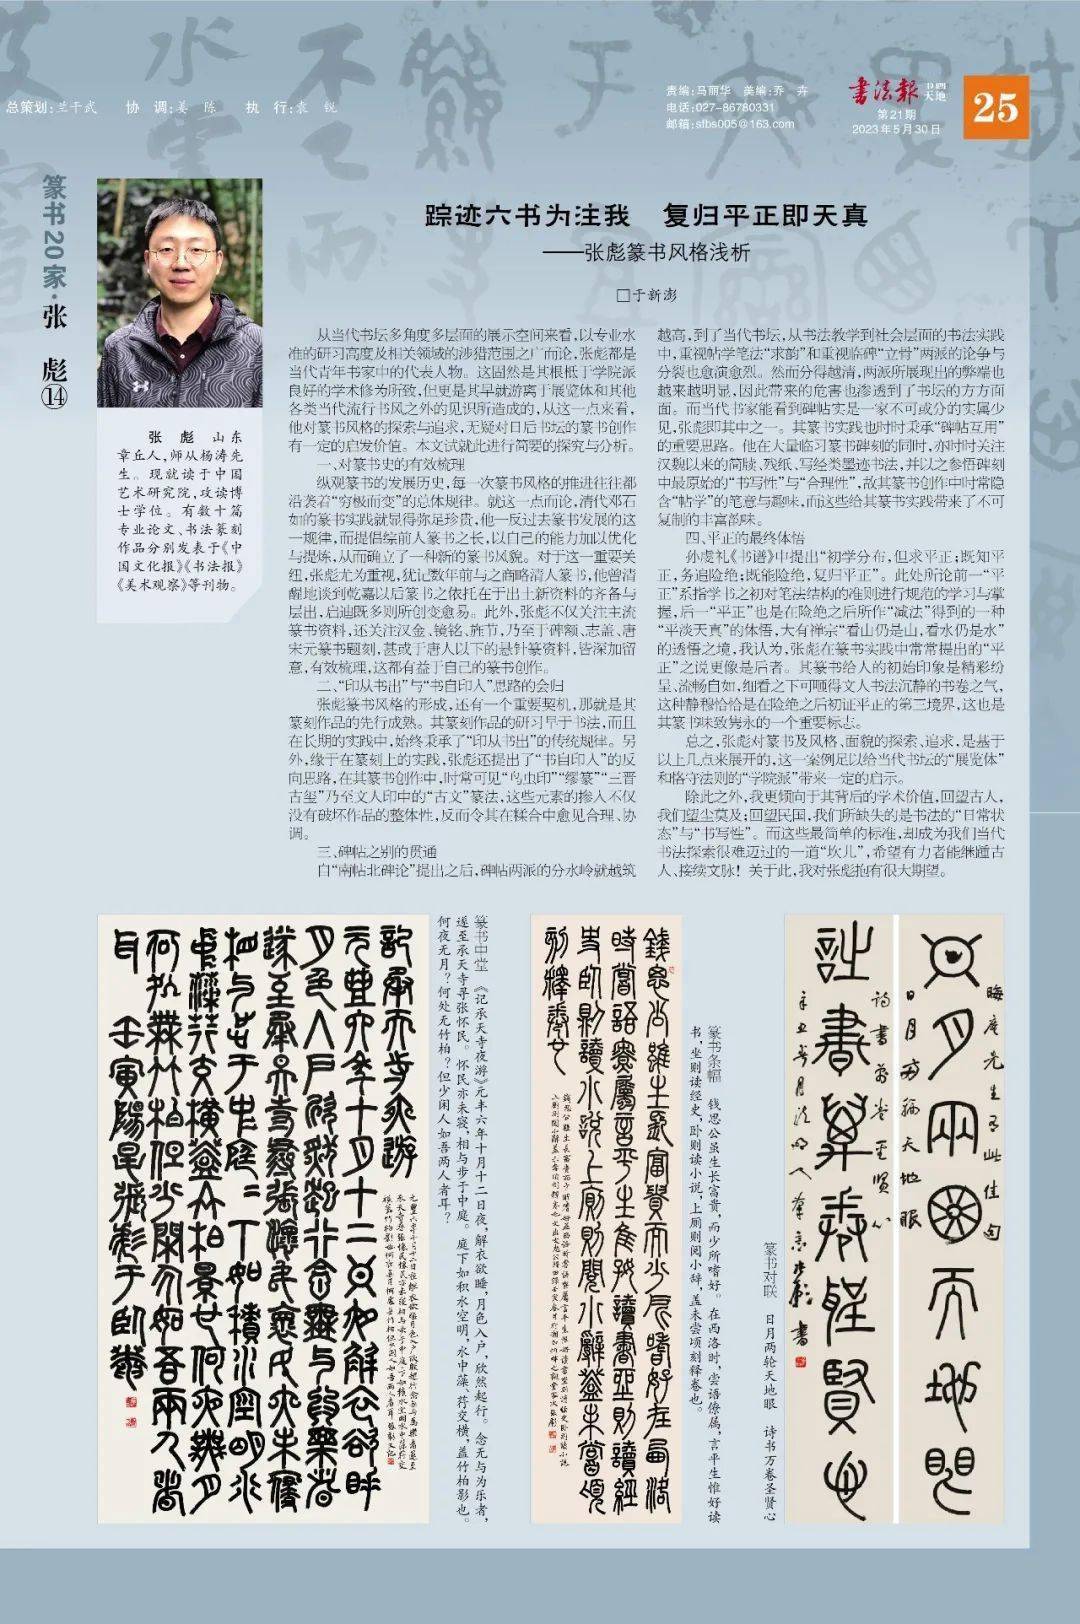 总策划:兰干武 协调:姜 陈 执行:袁 锐
责编:马丽华 美编:乔 卉
电话:027-86780331
邮箱:sfbs005@163.com
书法报 书画天地
第21期
2023年5月30日
25
篆书20家·张 彪⑭
张 彪 山东
章丘人,师从杨涛先
生。现就读于中国
艺术研究院,攻读博
士学位。有数十篇
专业论文、书法篆刻
作品分别发表于《中
国文化报》《书法报》
《美术观察》等刊物。
踪迹六书为注我 复归平正即天真
——张彪篆书风格浅析
□于新澎
从当代书坛多角度多层面的展示空间来看,以专业水
准的研习高度及相关领域的涉猎范围之广而论,张彪都是
当代青年书家中的代表人物。这固然是其根柢于学院派
良好的学术修为所致,但更是其早就游离于展览体和其他
各类当代流行书风之外的见识所造成的,从这一点来看,
他对篆书风格的探索与追求,无疑对日后书坛的篆书创作
有一定的启发价值。本文试就此进行简要的探究与分析。
一、对篆书史的有效梳理
纵观篆书的发展历史,每一次篆书风格的推进往往都
沿袭着“穷极而变”的总体规律。就这一点而论,清代邓石
如的篆书实践就显得弥足珍贵,他一反过去篆书发展的这
一规律,而提倡综前人篆书之长,以自己的能力加以优化
与提炼,从而确立了一种新的篆书风貌。对于这一重要关
纽,张彪尤为重视,犹记数年前与之商略清人篆书,他曾清
醒地谈到乾嘉以后篆书之依托在于出土新资料的齐备与
层出,启迪既多则所创变愈易。此外,张彪不仅关注主流
篆书资料,还关注汉金、镜铭、旌节,乃至于碑额、志盖、唐
宋元篆书题刻,甚或于唐人以下的悬针篆资料,皆深加留
意,有效梳理,这都有益于自己的篆书创作。
二、“印从书出”与“书自印人”思路的会归
张彪篆书风格的形成,还有一个重要契机,那就是其
篆刻作品的先行成熟。其篆刻作品的研习早于书法,而且
在长期的实践中,始终秉承了“印从书出”的传统规律。另
外,缘于在篆刻上的实践,张彪还提出了“书自印人”的反
向思路,在其篆书创作中,时常可见“鸟虫印”“缪篆”“三晋
古玺”乃至文人印中的“古文”篆法,这些元素的掺入不仅
没有破坏作品的整体性,反而令其在糅合中愈见合理、协
调。
三、碑帖之别的贯通
自“南帖北碑论”提出之后,碑帖两派的分水岭就越筑
越高,到了当代书坛,从书法教学到社会层面的书法实践
中,重视帖学笔法“求韵”和重视临碑“立骨”两派的论争与
分裂也愈演愈烈。然而分得越清,两派所展现出的弊端也
越来越明显,因此带来的危害也渗透到了书坛的方方面
面。而当代书家能看到碑帖实是一家不可或分的实属少
见,张彪即其中之一。其篆书实践也时时秉承“碑帖互用”
的重要思路。他在大量临习篆书碑刻的同时,亦时时关注
汉魏以来的简牍、残纸、写经类墨迹书法,并以之参悟碑刻
中最原始的“书写性”与“合理性”,故其篆书创作中时常隐
含“帖学”的笔意与趣味,而这些给其篆书实践带来了不可
复制的丰富韵味。
四、平正的最终体悟
孙虔礼《书谱》中提出“初学分布,但求平正;既知平
正,务追险绝;既能险绝,复归平正”。此处所论前一“平
正”系指学书之初对笔法结构的准则进行规范的学习与掌
握,后一“平正”也是在险绝之后所作“减法”得到的一种
“平淡天真”的体悟,大有禅宗“看山仍是山,看水仍是水”
的透悟之境,我认为,张彪在篆书实践中常常提出的“平
正”之说更像是后者。其篆书给人的初始印象是精彩纷
呈、流畅自如,细看之下可咂得文人书法沉静的书卷之气,
这种静穆恰恰是在险绝之后初证平正的第三境界,这也是
其篆书味致隽永的一个重要标志。
总之,张彪对篆书及风格、面貌的探索、追求,是基于
以上几点来展开的,这一案例足以给当代书坛的“展览体”
和恪守法则的“学院派”带来一定的启示。
除此之外,我更倾向于其背后的学术价值,回望古人,
我们望尘莫及;回望民国,我们所缺失的是书法的“日常状
态”与“书写性”。而这些最简单的标准,却成为我们当代
书法探索很难迈过的一道“坎儿”,希望有力者能继踵古
人、接续文脉！关于此,我对张彪抱有很大期望。
篆书中堂 《记承天寺夜游》元丰六年十月十二日夜,解衣欲睡,月色入户,欣然起行。念无与为乐者,
遂至承天寺寻张怀民。怀民亦未寝,相与步于中庭。庭下如积水空明,水中藻、荇交横,盖竹柏影也。
何夜无月?何处无竹柏?但少闲人如吾两人者耳?
篆书条幅 钱思公虽生长富贵,而少所嗜好。在西洛时,尝语僚属,言平生惟好读
书,坐则读经史,卧则读小说,上厕则阅小辞,盖未尝顷刻释卷也。
篆书对联 日月两轮天地眼 诗书万卷圣贤心
晦庵先生有此佳句
日月两轮天地眼
诗书万卷圣贤心